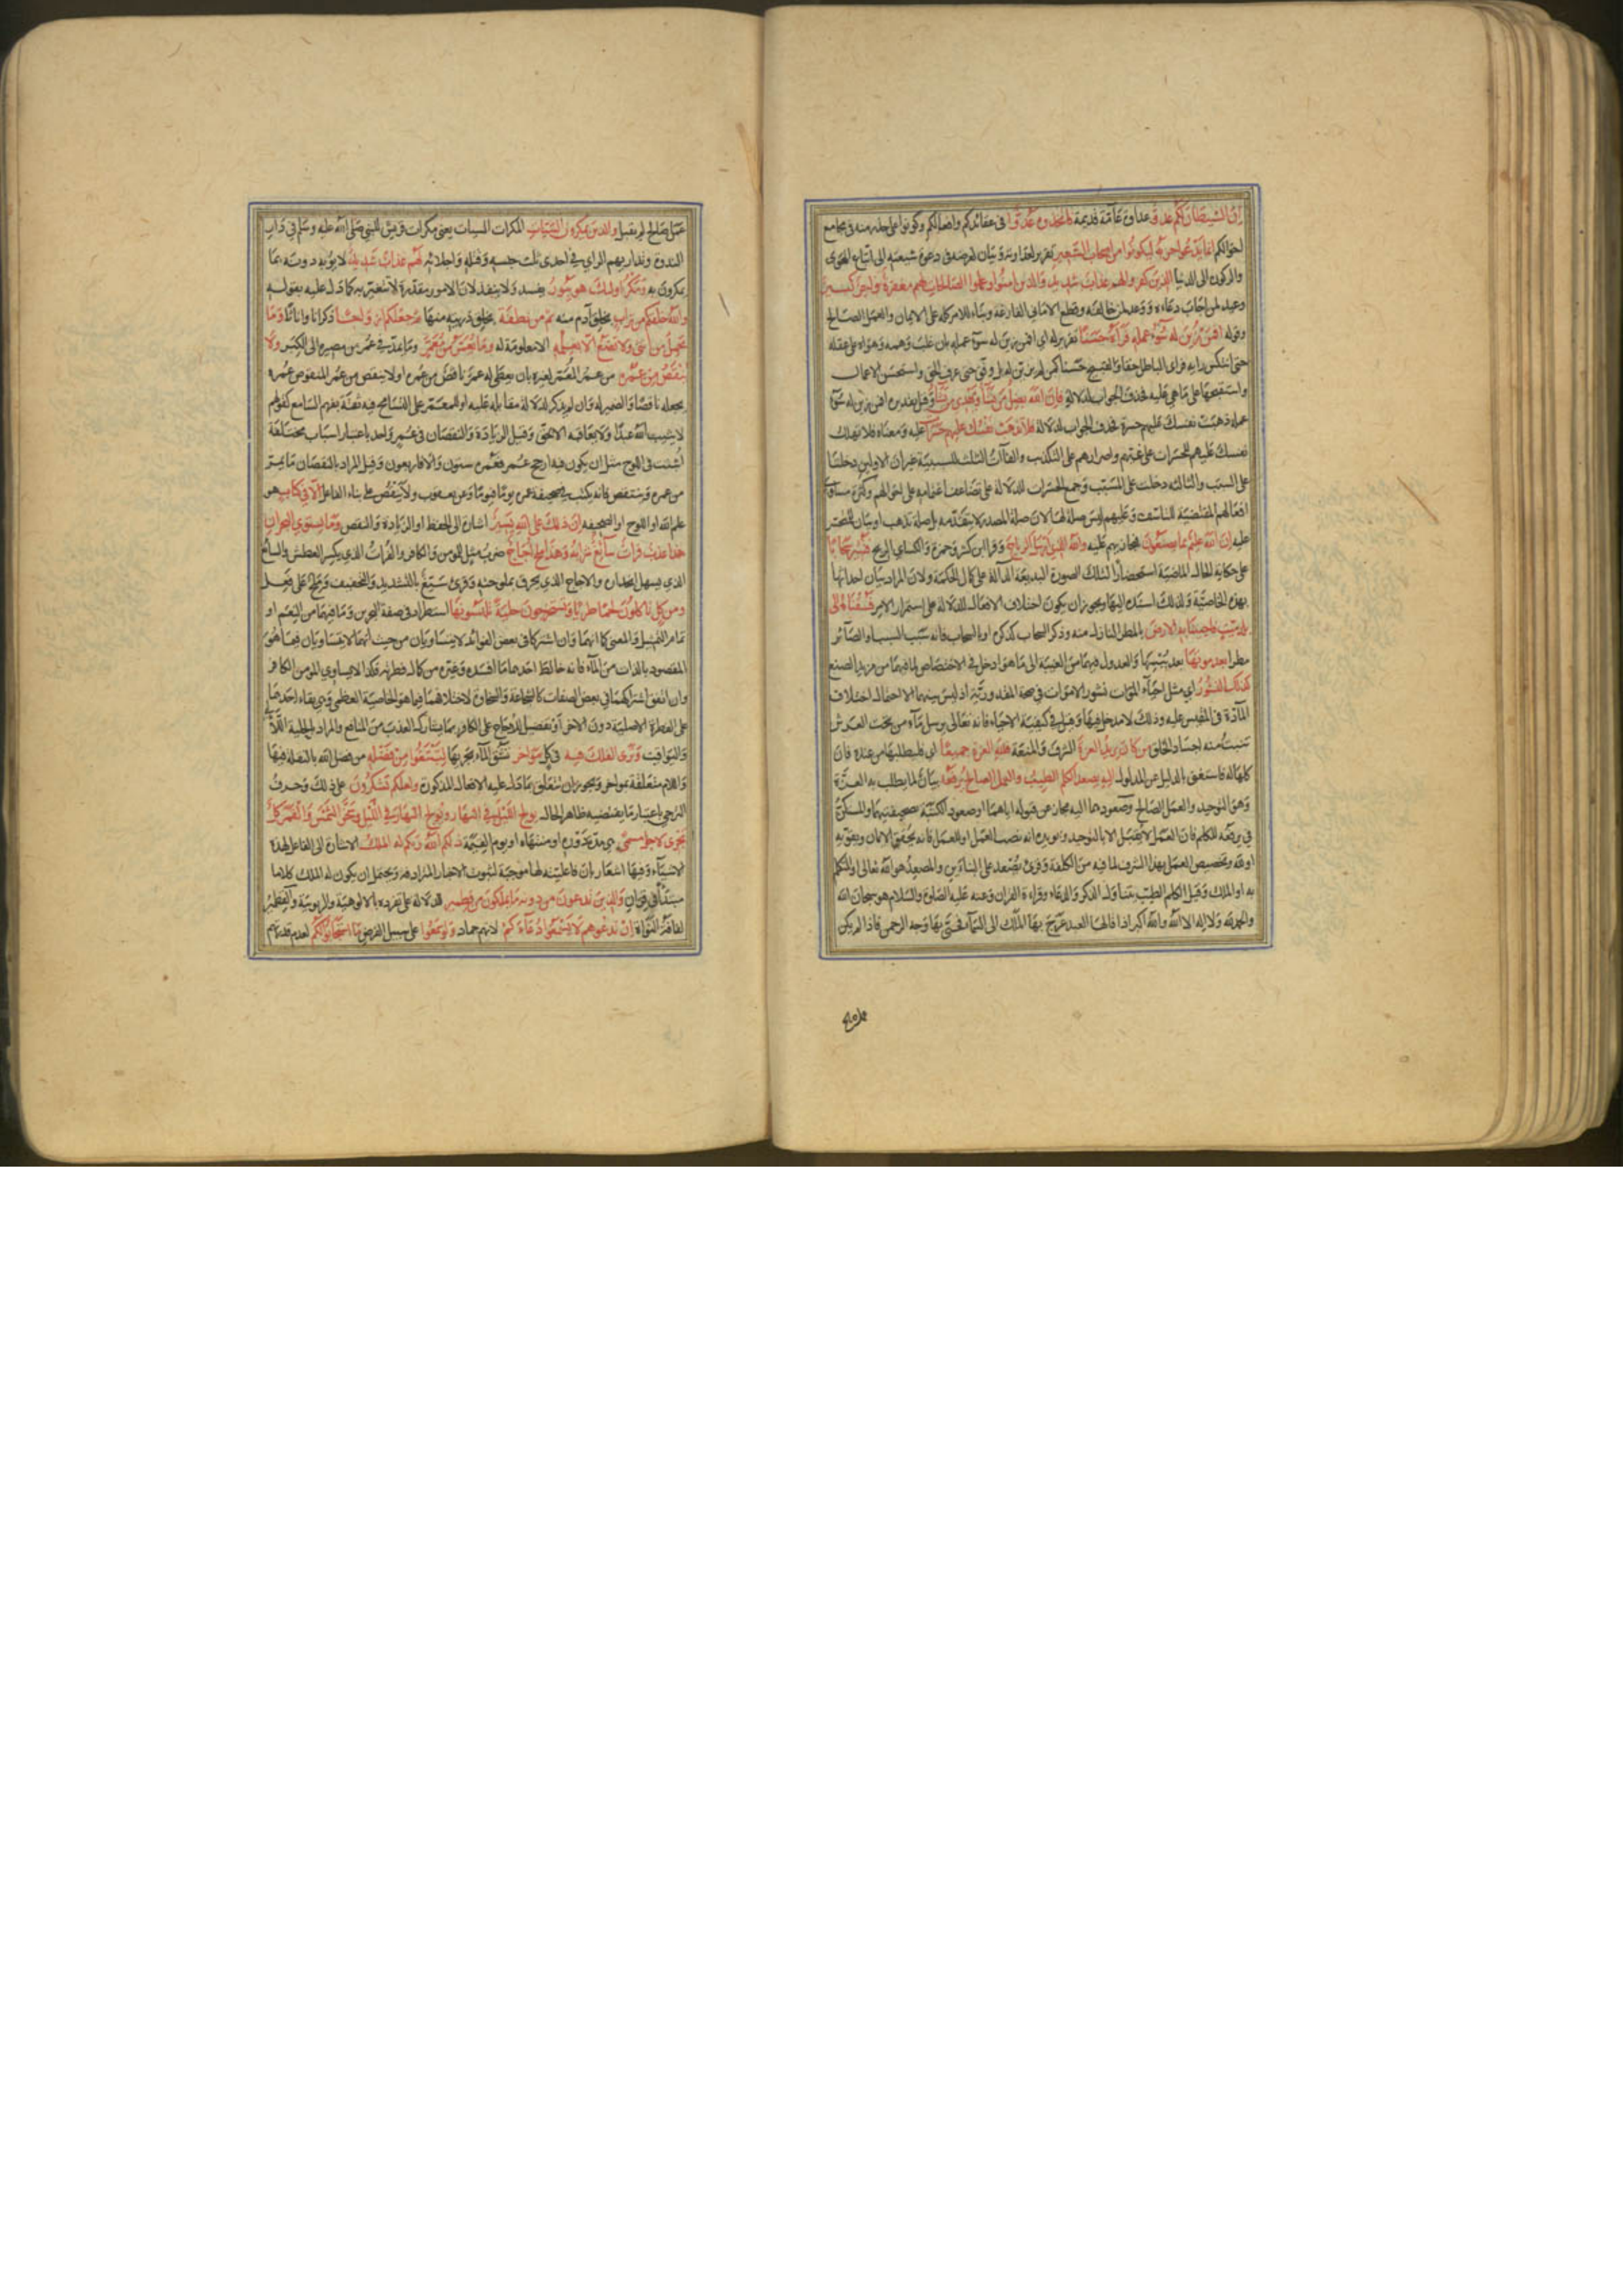 إن الشيطان لكم عدو عداوة عامة قديمة فاتخذوه عدوا في عقائدكم وافعالكم وكونوا على حذر منه في مجامع
احوالكم إنما يدعوا حزبه ليكونوا من اصحاب السعير تقرير لعداوته وبيان لغرضه في دعوة شيعته الى اتباع الهوى
والركون الى الدنيا الذين كفروا لهم عذاب شديد والذين امنوا وعملوا الصالحات لهم مغفرة واجر كبير
وعيد لمن اجاب دعاءه ووعد لمن خالفه وقطع للاماني الفارغة وبناء للامر كله على الايمان والعمل الصالح
وقوله افمن زين له سوء عمله فرآه حسنا تقرير له اي افمن زين له سوء عمله بان غلب وهمه وهواه على عقله
حتى انتكس رايه فراى الباطل حقا والقبيح حسنا كمن لم يزين له بل وفق حتى عرف الحق واستحسن الاعمال
واستقبحها على ما هي عليه فحذف الجواب لدلالة فإن الله يضل من يشاء ويهدي من يشاء وقيل تقديره افمن زين له سوء
عمله ذهبت نفسك عليهم حسرة فحذف الجواب لدلالة فلا تذهب نفسك عليهم حسرات عليه ومعناه فلا تهلك
نفسك عليهم للحسرات على غيهم واصرارهم على التكذيب والفاآت الثلث للسببية غير ان الاوليين دخلتا
على السبب والثالثة دخلت على المسبب وجمع الحسرات للدلالة على تضاعف اغتمامه على احوالهم وكثرة مساوي
افعالهم المقتضية للتاسف وعليهم ليس صلة لها لان صلة المصدر لا يتقدمه بل صلة تذهب او بيان للمتحسر
عليه إن الله عليم بما يصنعون فيجازيهم عليه والله الذي ارسل الرياح وقرا ابن كثير وحمزة والكسائي الريح فتثير سحابا
على حكاية الحال الماضية استحضارا لتلك الصورة البديعة الدالة على كمال الحكمة ولان المراد بيان احداثها
بهذه الخاصية ولذلك اسنده اليها ويجوز ان يكون اختلاف الافعال للدلالة على استمرار الامر فسقناه إلى
بلد ميت فاحيينا به الارض بالمطر النازل منه وذكر السحاب كذكره او بالسحاب فانه سبب السبب او الصائر
مطرا بعد موتها بعد يبسها والعدول فيهما من الغيبة الى ما هو ادخل في الاختصاص لما فيهما من مزيد الصنع
كذلك النشور اي مثل احياء الموات نشور الاموات في صحة المقدورية اذ ليس بينهما الا احتمال اختلاف
المادة في المقيس عليه وذلك لا مدخل فيها وقيل في كيفية الاحياء فانه تعالى يرسل ماء من تحت العرش
تنبت منه اجساد الخلق من كان يريد العزة الشرف والمنعة فلله العزة جميعا اي فليطلبها من عنده فان
كلها له فاستغنى بالدليل عن المدلول إليه يصعد الكلم الطيب والعمل الصالح يرفعه بيان لما يطلب به العزة
وهو التوحيد والعمل الصالح وصعودهما اليه مجاز عن قبوله اياهما او صعود الكتبة بصحيفتهما والمستكن
في يرفعه للكلم فان العمل لا يقبل الا بالتوحيد ويؤيده انه نصب العمل او للعمل فانه يحقق الايمان ويقويه
او لله وتخصيص العمل بهذا الشرف لما فيه من الكلفة وقرئ يصعد على البناءين والمصعد هو الله تعالى او المتكلم
به او الملك وقيل الكلم الطيب يتناول الذكر والدعاء وقراءة القران وعنه عليه الصلوة والسلام هو سبحان الله
والحمد لله ولا إله الا الله والله اكبر اذا قالها العبد عرج بها الملك الى السماء فحيى بها وجه الرحمن فاذا لم يكن
عمل صالح لم يقبل والذين يمكرون السيئات المكرات السيئات يعني مكرات قريش للنبي صلى الله عليه وسلم في دار
الندوة وتداريهم الراي في احدى ثلث حبسه وقتله واجلائه لهم عذاب شديد لا يؤبه دونه بما
يمكرون به ومكر اولئك هو يبور يفسد ولا ينفذ لان الامور مقدرة لا تتغير به كما دل عليه بقوله
والله خلقكم من تراب بخلق آدم منه ثم من نطفة بخلق ذريته منها ثم جعلكم ازواجا ذكرانا واناثا وما
تحمل من انثى ولا تضع الا بعلمه الا معلومة له وما يعمر من معمر وما يمد في عمر من مصيره الى الكبر ولا
ينقص من عمره من عمر المعمر لغيره بان يعطى له عمر ناقص من عمره او لا ينقص من عمر المنقوص عمره
بجعله ناقصا والضمير له وان لم يذكر لدلالة مقابله عليه او للمعمر على التسامح فيه ثقة بفهم السامع كقولهم
لا يثيب الله عبدا ولا يعاقبه الا بحق وقيل الزيادة والنقصان في عمر واحد باعتبار اسباب مختلفة
اثبتت في اللوح مثل ان يكون فيه ان حج عمر فعمره ستون والا فاربعون وقيل المراد بالنقصان ما يمر
من عمره وينتقص فانه يكتب في صحيفة عمره يوما فيوما وعن يعقوب ولا ينقص على بناء الفاعل الا في كتاب هو
علم الله او اللوح او الصحيفة إن ذلك على الله يسير اشارة الى الحفظ او الزيادة والنقص وما يستوي البحران
هذا عذب فرات سائغ شرابه وهذا ملح اجاج ضرب مثل للمومن والكافر والفرات الذي يكسر العطش والسائغ
الذي يسهل انحداره والاجاج الذي يحرق بملوحته وقرئ سيغ بالتشديد والتخفيف وملح على فعل
ومن كل تاكلون لحما طريا وتستخرجون حلية تلبسونها استطراد في صفة البحرين وما فيهما من النعم او
تمام التمثيل والمعنى كما انهما وان اشتركا في بعض الفوائد لا يتساويان من حيث انهما لا يتساويان فيما هو
المقصود بالذات من الماء فانه خالط احدهما ما افسده وغيره من كمال فطرته فكذا لا يساوي المومن الكافر
وان اتفق اشتراكهما في بعض الصفات كالشجاعة والسخاوة لاختلافهما فيما هو الخاصية العظمى وهي بقاء احدهما
على الفطرة الاصلية دون الاخر او تفضيل للاجاج على الكافر بما يشارك العذب من المنافع والمراد بالحلية اللآلئ
واليواقيت وترى الفلك فيه في كل مواخر تشق الماء بجريها لتبتغوا من فضله من فضل الله بالنقلة فيها
واللام متعلقة بمواخر ويجوز ان تتعلق بما دل عليه الافعال المذكورة ولعلكم تشكرون على ذلك وحرف
الترجي باعتبار ما يقتضيه ظاهر الحال يولج الليل في النهار ويولج النهار في الليل وسخر الشمس والقمر كل
يجري لاجل مسمى هي مدة دوره او منتهاه او يوم القيمة ذلكم الله ربكم له الملك الاشارة الى الفاعل لهذه
الاشياء وفيها اشعار بان فاعليته لها موجبة لثبوت الاخبار المترادفة ويحتمل ان يكون له الملك كلاما
مبتدأ في قران والذين تدعون من دونه ما يملكون من قطمير للدلالة على تفرده بالالوهية والربوبية والقطمير
لفافة النواة إن تدعوهم لا يسمعوا دعاءكم لانهم جماد ولو سمعوا على سبيل الفرض ما استجابوا لكم لعدم قدرتهم